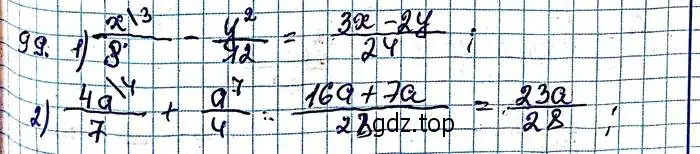 99. 1) x\3/8 - y\2/12 = 3x-2y/24 ;
2) 4a\4/7 + a\7/4 = 16a+7a/28 = 23a/28 ;
gdz.top